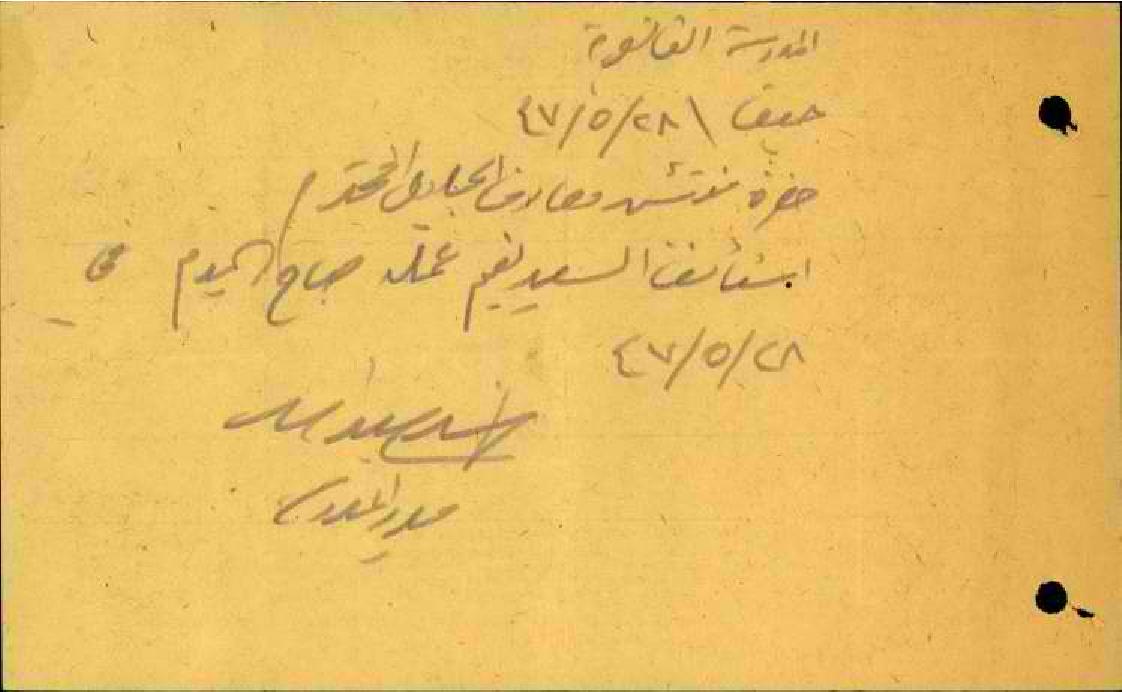 المدرسة الثانوية
حيفا ٢٨/٥/٤٧
حضرة مفتش معارف الجليل المحترم
استأنف السيد عمله صباح اليوم في
٢٨/٥/٤٧
مدير المدرسة